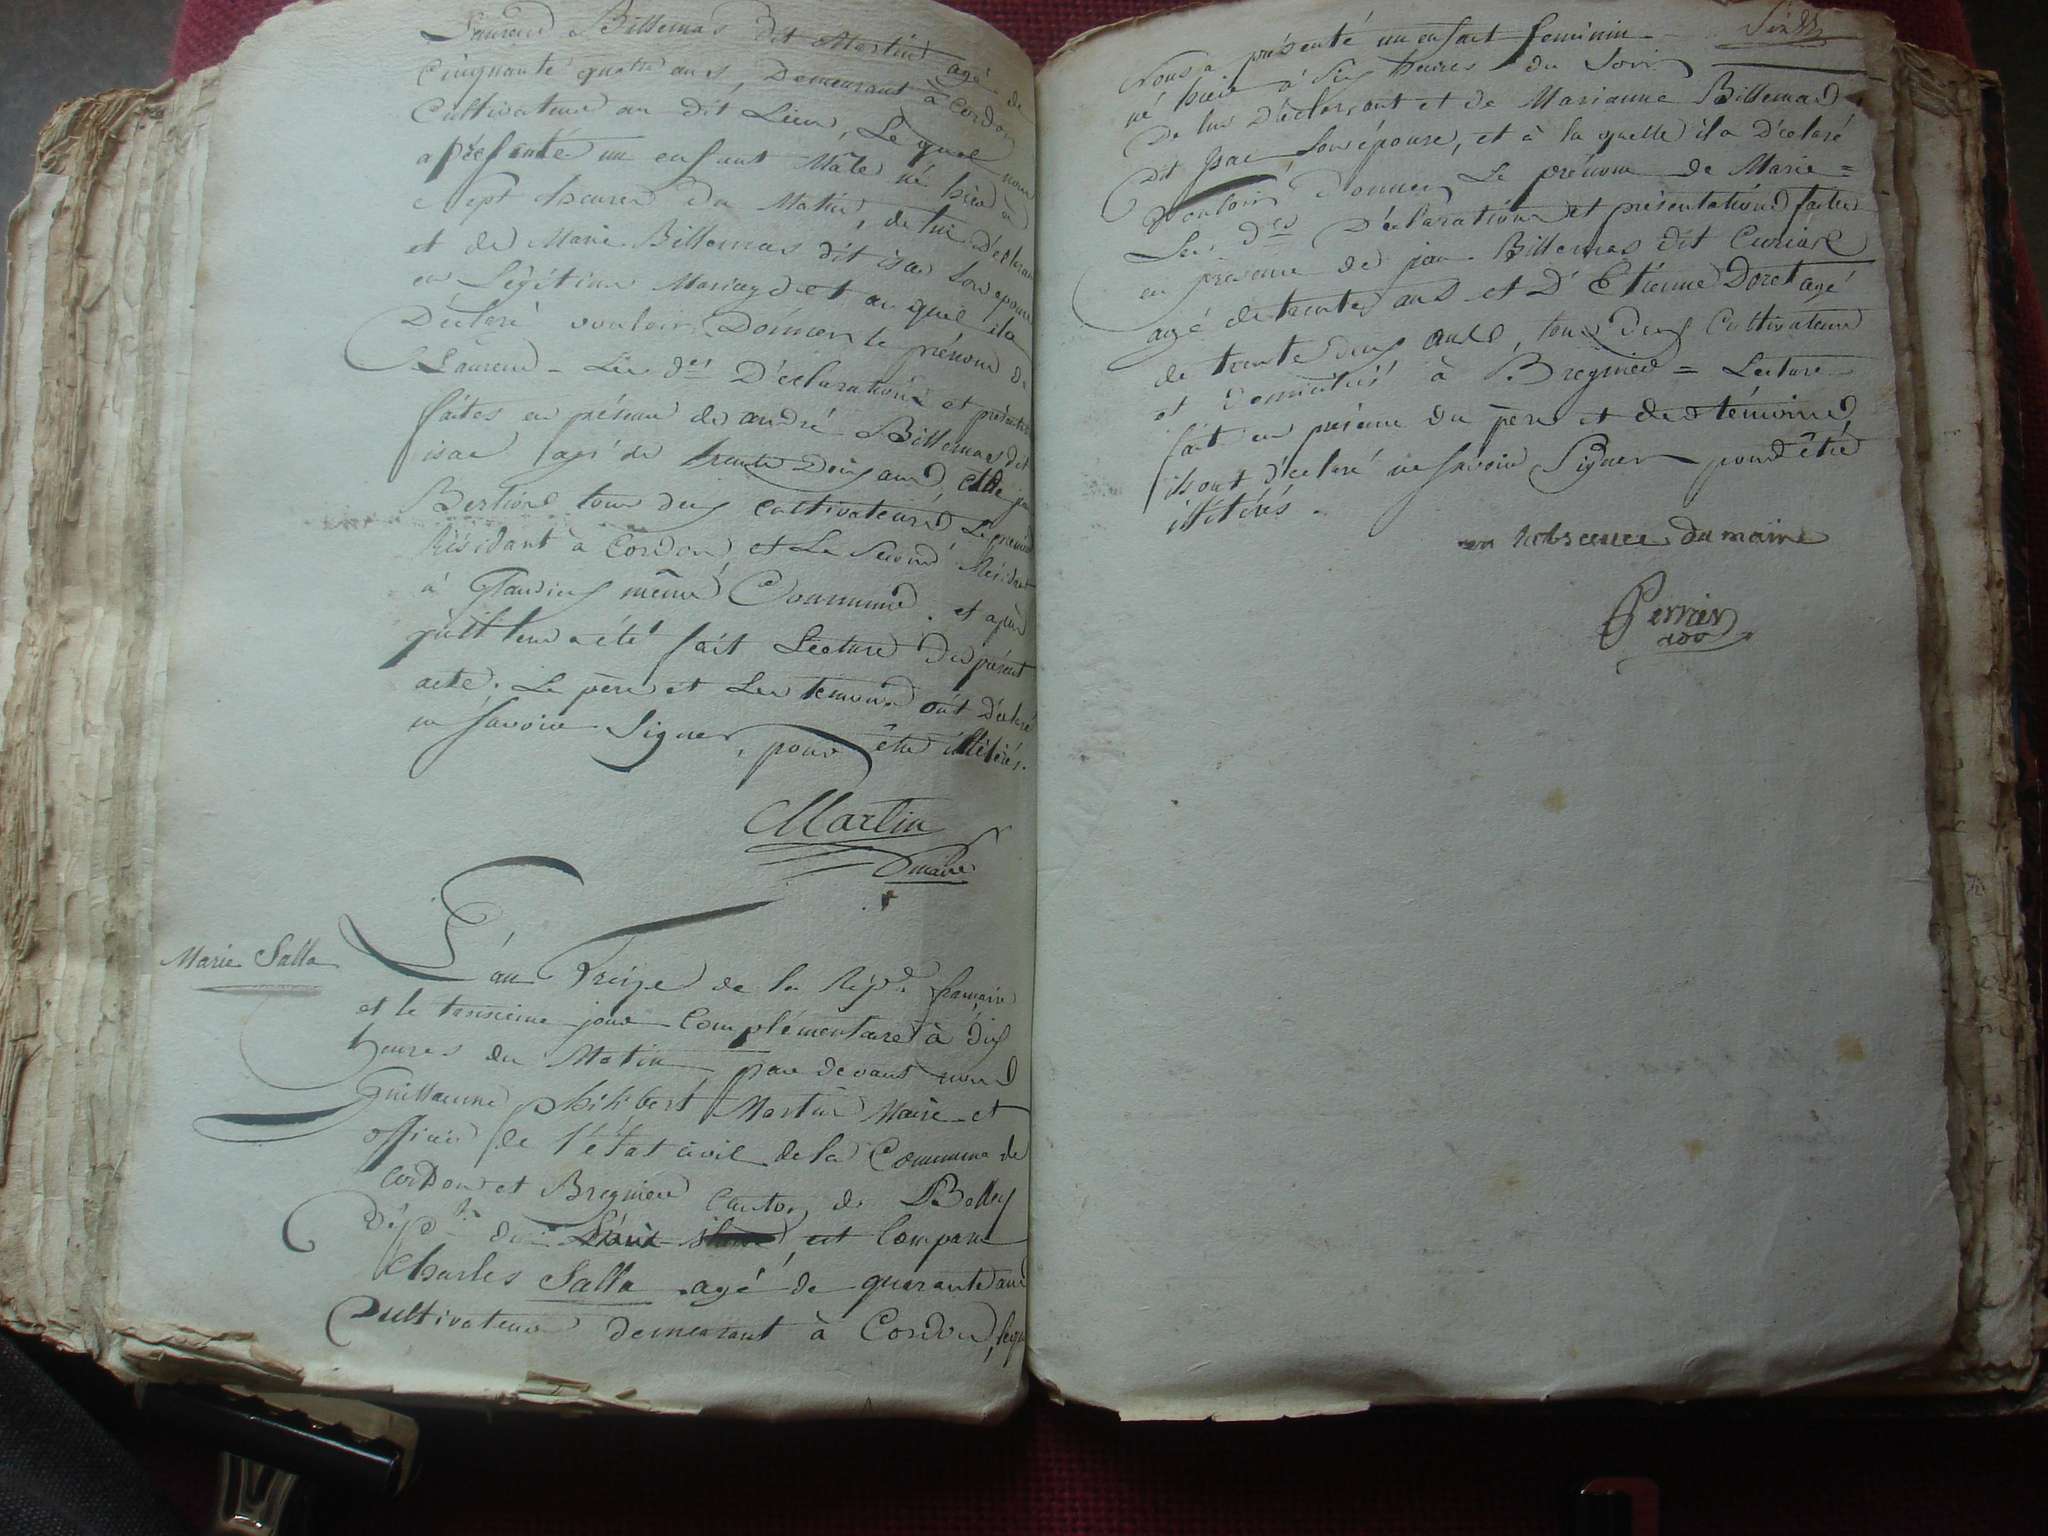 Laurent Billemas dit Martin agé de
Cinquante quatre ans, Demeurant à Cordon
Cultivateur au dit Lieu, Lequel nous
a présenté un enfant Mâle né hier à
sept heures du Matin, de lui Déclarant
et de Marie Billemas dit isac son epouse
en Légitime Mariage et au quel il a
Déclaré vouloir Donner le prénom de
Laurent - Les des Déclarations et présentation
faites en présence de andré Billemas dit
isac agé de trente Deux ans, et de jean
Bertiond tous deux cultivateurs, Le premier
Résidant à Cordon, et Le Second Résidant
à Glandieu même Commune. et après
qu'il leur a été fait Lecture du présent
acte. Le père et Les temoins ont Déclaré
ne savoir Signer, pour être illitérés.
Martin
maire
Marie Salla
L'an Treize de la Rép.e française
et le troisieme jour Complémentaire à dix
heures du Matin par devant nous
Guillaume philibert Martin Maire et
officier de l'état civil de la Commune de
Cordon et Bregnier Canton de Belley
Dép.t de L'ain est Comparu
Charles Salla agé de quarante ans
Cultivateur demeurant à Cordon, lequel
Six
Nous a présenté un enfant feminin
né hier à six heures du Soir
De lui Déclarant et de Marianne Billemas
Dit Isac Son épouse, et à la quelle il a Déclaré
vouloir Donner Le prénom de Marie =
Les des Déclarations et présentations faites
en présence de jean Billemas dit Curiat
agé de trente ans et D'Etienne Doret agé
de trente deux ans, tous deux Cultivateurs
et Domiciliés à Bregnier = Lecture
fait en présence du père et des témoins,
ils ont déclaré ne savoir Signer pour être
illitérés.
en l'absence du maire
Perrier
adj